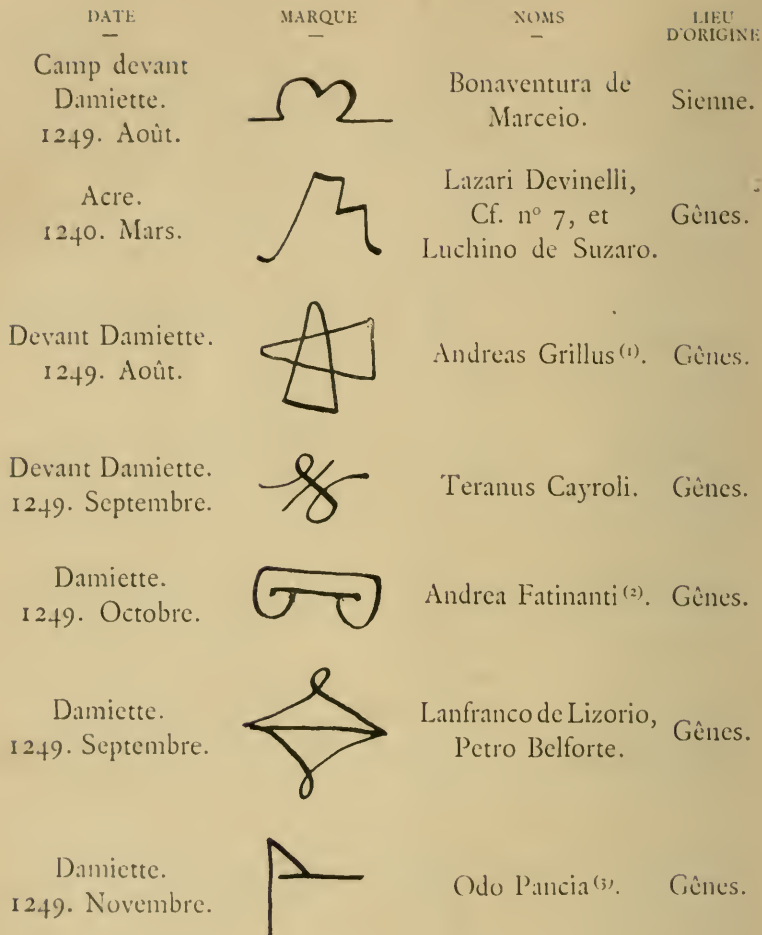 DATE MARQUE NOMS LIEU D'ORIGINE
Camp devant
Damiette.
1249. Août.
Bonaventura de
Marceio.
Sienne.
Acre.
1240. Mars.
Lazari Devinelli,
Cf. nº 7, et
Luchino de Suzaro.
Gênes.
Devant Damiette.
1249. Août.
Andreas Grillus (1).
Gênes.
Devant Damiette.
1249. Septembre.
Teranus Cayroli.
Gênes.
Damiette.
1249. Octobre.
Andrea Fatinanti (2).
Gênes.
Damiette.
1249. Septembre.
Lanfranco de Lizorio,
Petro Belforte.
Gênes.
Damiette.
1249. Novembre.
Odo Pancia (3).
Gênes.